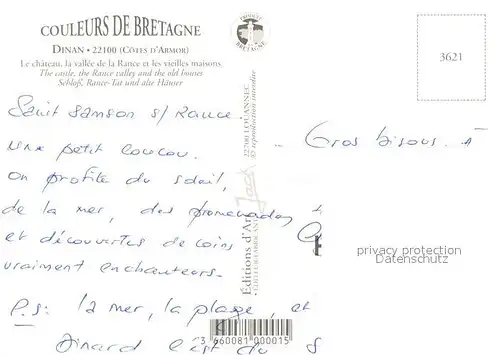 COULEURS DE BRETAGNE
DINAN • 22100 (CÔTES D'ARMOR)
Le château, la vallée de la Rance et les vieilles maisons.
The castle, the Rance valley and the old houses
Schloß, Rance-Tal und alte Häuser
PRODUIT
BRETAGNE
3621
Saint Samson s/Rance.
une petit coucou.
on profite du soleil,
de la mer, des promenades
et découvertes de coins
vraiment enchanteurs.
P.S: la mer, la plage, et
Dinard c'est du
Gros bisous. à
Editions d'Art Jack
22700 LOUANNEC
© reproduction interdite
EDITEUR FABRICANT
3 660081 000015
privacy protection
Datenschutz